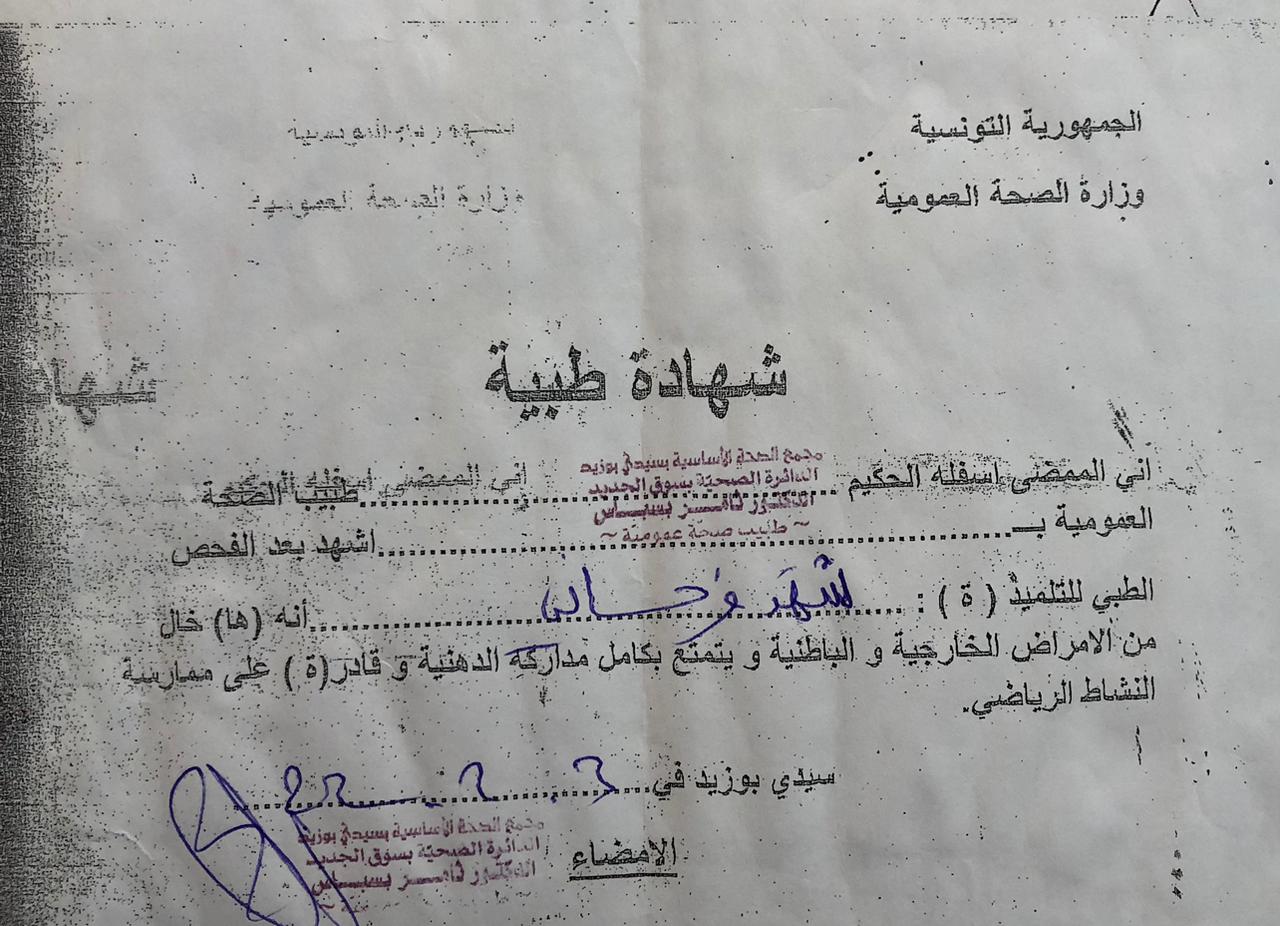 الجمهورية التونسية
وزارة الصحة العمومية
وزارة الصحة العمومية
شهادة طبية
شهاد
مجمع الصحة الأساسية بسيدي بوزيد
الدائرة الصحية بسوق الجديد
الدكتور ثامر بسباس
~ طبيب صحة عمومية ~
اني الممضى اسفله الحكيم ........ طبيب الصحة
اني الممضى اسفله
العمومية بـ ........ اشهد بعد الفحص
الطبي للتلميذ ( ة ) : ........ شهر ........ أنه (ها) خال
من الامراض الخارجية و الباطنية و يتمتع بكامل مداركه الدهنية و قادر(ة ) على ممارسة
النشاط الرياضي.
سيدي بوزيد في ........
الامضاء
مجمع الصحة الأساسية بسيدي بوزيد
الدائرة الصحية بسوق الجديد
الدكتور ثامر بسباس